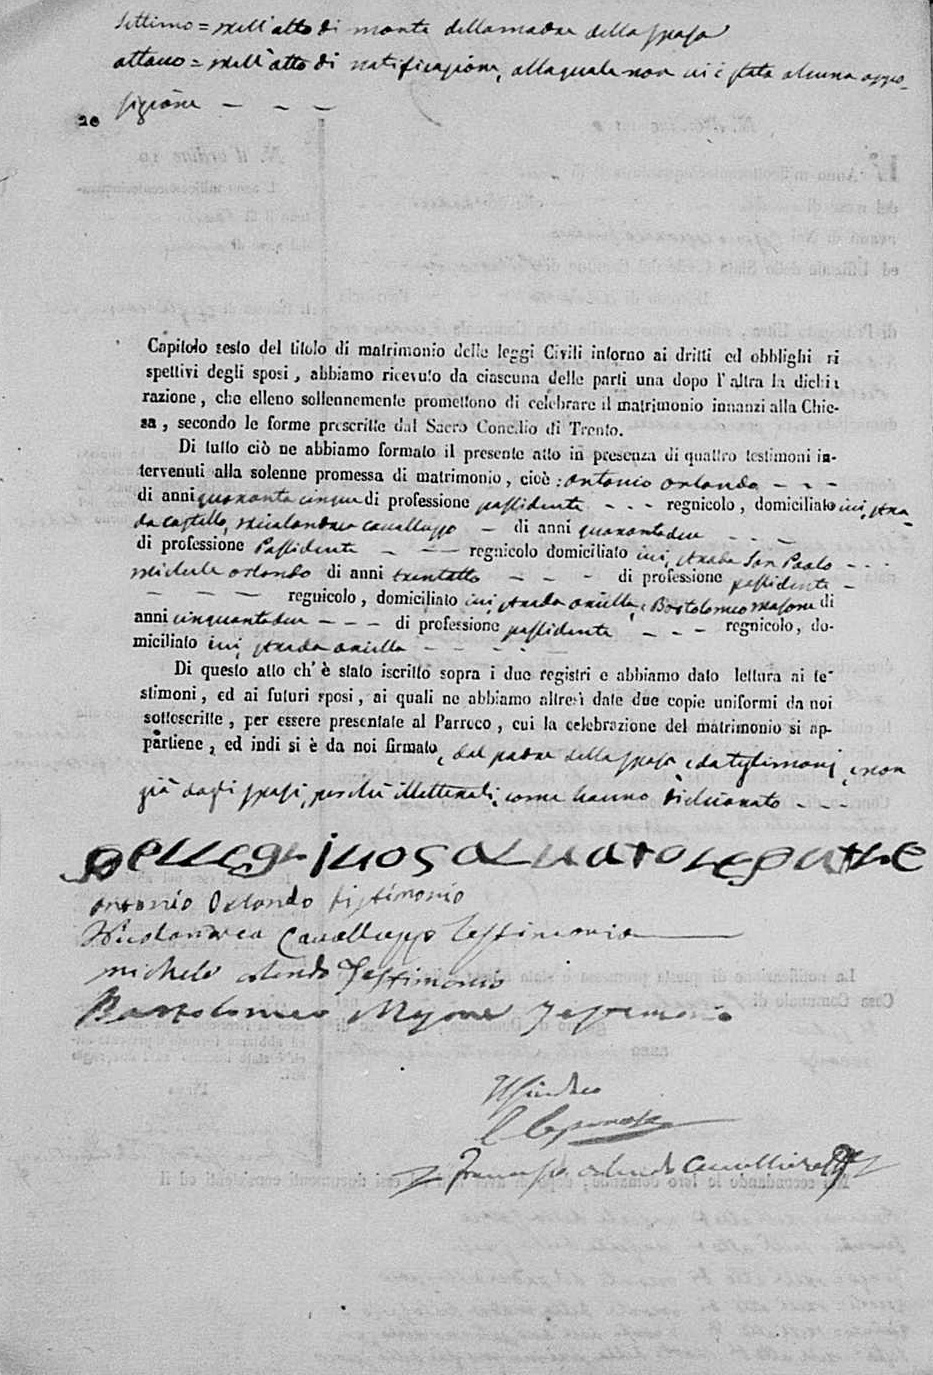 Settimo = nell'atto di morte della madre della sposa
ottavo = nell'atto di notificazione, alla quale non vi è stata alcuna oppo-
sizione - - -
20
Capitolo sesto del titolo di matrimonio delle leggi Civili intorno ai dritti ed obblighi ri
spettivi degli sposi, abbiamo ricevuto da ciascuna delle parti una dopo l'altra la dichia
razione, che elleno sollennemente promettono di celebrare il matrimonio innanzi alla Chie-
sa, secondo le forme prescritte dal Sacro Concilio di Trento.
Di tutto ciò ne abbiamo formato il presente atto in presenza di quattro testimoni in-
tervenuti alla solenne promessa di matrimonio, cioè: Antonio Orlando - - -
di anni quaranta cinque di professione possidente - - - regnicolo, domiciliato ivi, stra-
da Castello, Nicolandrea Cavalluppo - di anni quarantadue - - -
di professione Possidente - - - regnicolo domiciliato ivi, strada San Paolo - - -
Michele Orlando di anni trentotto - - - di professione possidente -
- - - regnicolo, domiciliato ivi, strada e Bortolomeo Masone di
anni cinquantadue - - - di professione possidente - - - regnicolo, do-
miciliato ivi, strada - - - -
Di questo atto ch'è stato iscritto sopra i due registri e abbiamo dato lettura ai te-
stimoni, ed ai futuri sposi, ai quali ne abbiamo altresì date due copie uniformi da noi
sottoscritte, per essere presentate al Parroco, cui la celebrazione del matrimonio si ap-
partiene, ed indi si è da noi firmato, dal padre della sposa e da testimonj, e non
già dagli sposi, perché illetterati, come hanno dichiarato - - -
pellegrino salvatore patre
Antonio Orlando testimonio
Nicolandrea Cavalluppo Testimonio
Michele Orlando Testimonio
Bartolomeo Masone Testimonio
Il Sindaco
Francesco Orlando Cancelliere